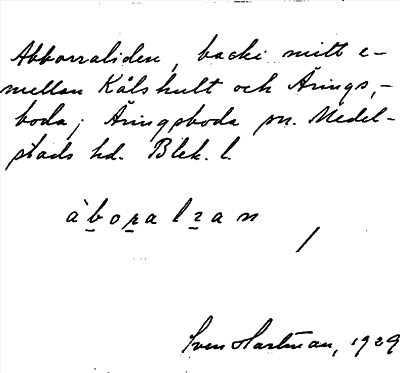 Abborraliden, backe mitt e-
mellan Kålshult och Ärings,-
boda; Äringsboda sn. Medel-
stads hd. Blek. l.
àb̲or̲alz̲an
/
Sven Hartman, 1929